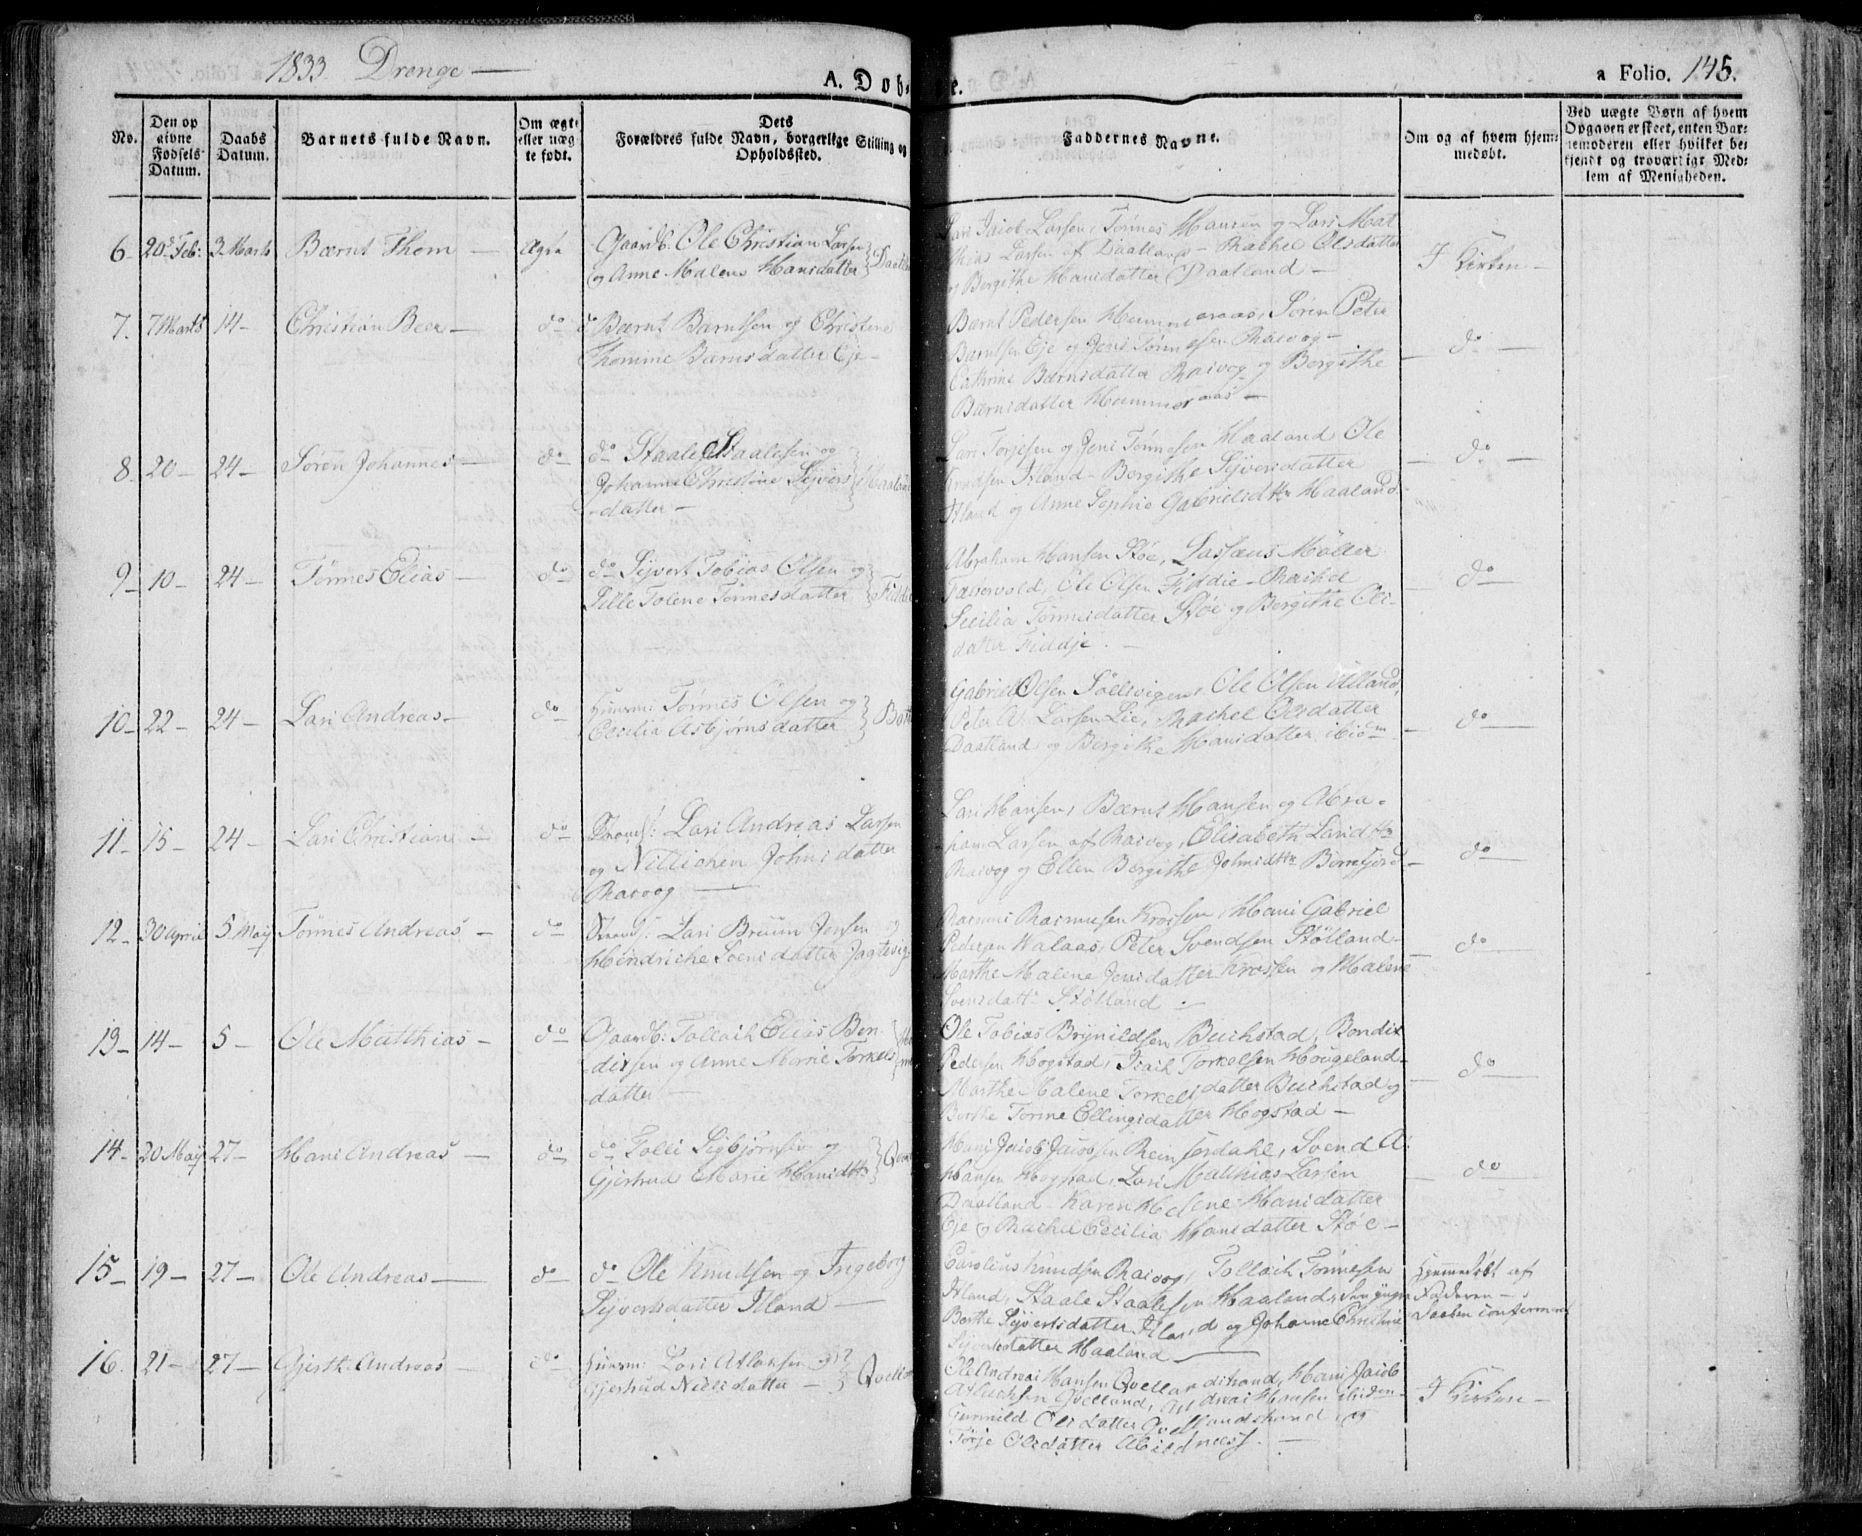 1833 Drenge —
A. Døb
e.
a Folio. 145.
No.
Den op
givne
Fødsels
Datum.
Daabs
Datum.
Barnets fulde Navn.
Om ægte
eller uæg
te født.
Dets
Forældres fulde Navn, borgerlige Stilling og
Opholdssted.
Faddernes Navne.
Om og af hvem hjem:
medøbt.
Ved uægte Børn af hvem
Opgaven er skeet, enten Bar:
nemoderen eller hvilket be:
kjendt og troværdigt Med:
lem af Menigheden.
6 20 Feb: 3 Marts Bærnt Thom — ægte
Gaardb: Ole Christian Larsen
og Anne Malene Hansdatter
Lars Jacob Larsen, Tønnes Hansen og Lars Mat
thias Larsen af Daatland — Rachel Olsdatter
og Bergithe Hansdatter Daatland —
I Kirken —
7. 7 Marts 14 — Christian Beer — do
Bærnt Barntsen og Christine
Thomine Bærnsdatter Eje —
Bærnt Pedersen Hummeraas, Søren Peter
Barntsen Eje og Jens Tønnesen Rasvog —
Cathrine Bærnsdatter Rasvog og Bergithe
Bærnsdatter Hummeraas —
do —
8 20 — 24 — Søren Johannes — do
do Staale Staalesen og
Johanne Christine Sijvers
datter —
Lars Torjesen og Jens Tønnesen Haaland, Ole
Knudsen Itland — Bergithe Sijversdatter
Itland og Anne Sophie Gabrielsdtr Haaland
do —
9 — 10 — 24 — Tønnes Elias — do
do Sijvert Tobias Olsen og
Sille Tolene Tønnesdatter
Abraham Hansen Støe, Lassæus Møller
Ole Olsen Fiddie — Rachel
Secilia Tønnesdatter Støe og Bergithe Ols-
datter Fiddje. —
do —
10 — 22 — 24 — Lars Andreas — do
Huusm: Tønnes Olsen og
Cecilia Asbjørnsdatter
Gabriel Olsen Sølesvigen, Ole Olsen
Peter A. Larsen Lie, Rachel Olsdatter
Daatland og Bergithe Hansdatter ibidm —
do —
11 — 15 — 24 — Lars Christian — do
Lars Andreas Larsen
og Nillichen Johnsdatter
Rasvog —
Lars Hansen, Bærnt Hansen og Abra-
ham Larsen af Rasvog, Elisabeth Larsdtr
Rasvog og Ellen Bergithe Johnsdtr Borrefjord —
do —
12 — 30 April 5 Maij Tønnes Andreas — do
Lars Bruun Jensen og
Hendriche Svensdatter
Rasmus Rasmusen Krossen, Hans Gabriel
Pedersen Walaas, Peter Svendsen Stølland —
Marthe Malene Jensdatter Krossen og Malene
Svensdatt: Stølland —
do —
13 — 14 — 5 — Ole Matthias — do
Gaardb: Tollach Elias Ben
dixsen og Anne Marie Torkels
datter —
Ole Tobias Brynildsen Buchstad, Bendix
Pedersen Hogstad, Isach Torkelsen Hougeland —
Marthe Malene Torkelsdatter Buchstad og
Berthe Tomine Ellingsdatter Hogstad —
do —
14 — 20 Maij 27 — Hans Andreas — do
do Tolli Sigbjørnsen og
Gjertrud Marie Hansdtr
Hans Jacob Jacobsen Svend A:
Hansen Hogstad, Lars Matthias Larsen
Daatland — Karen Helene Hansdatter
Eje og Rachel Cecilia Hansdatter Støe —
do —
15 — 19 — 27 — Ole Andreas — do
do Ole Knudsen og Ingebog
Sijvertsdatter Itland —
Carolius Knudsen Rasvog, Tollach Tønnesen
Itland, Staale Staalesen Haaland,
Berthe Sijvertsdatter Itland og Johanne Christine
Sijvertsdatter Haaland —
Hjemmedøbt af
Faderen —
Daaben confirmeret
16. 21 — 27 — Gjerth Andreas — do
Huusm: Lars Atlaksen og
Gjertrud Nielsdatter —
Ole Andreas Hansen Hans Jacob
Atlacksen Qvelland, Andreas Hansen
Gunnild Olsdatter Qvellandstrand, og
Tørje Olsdatter Abildnæss. —
I Kirken —